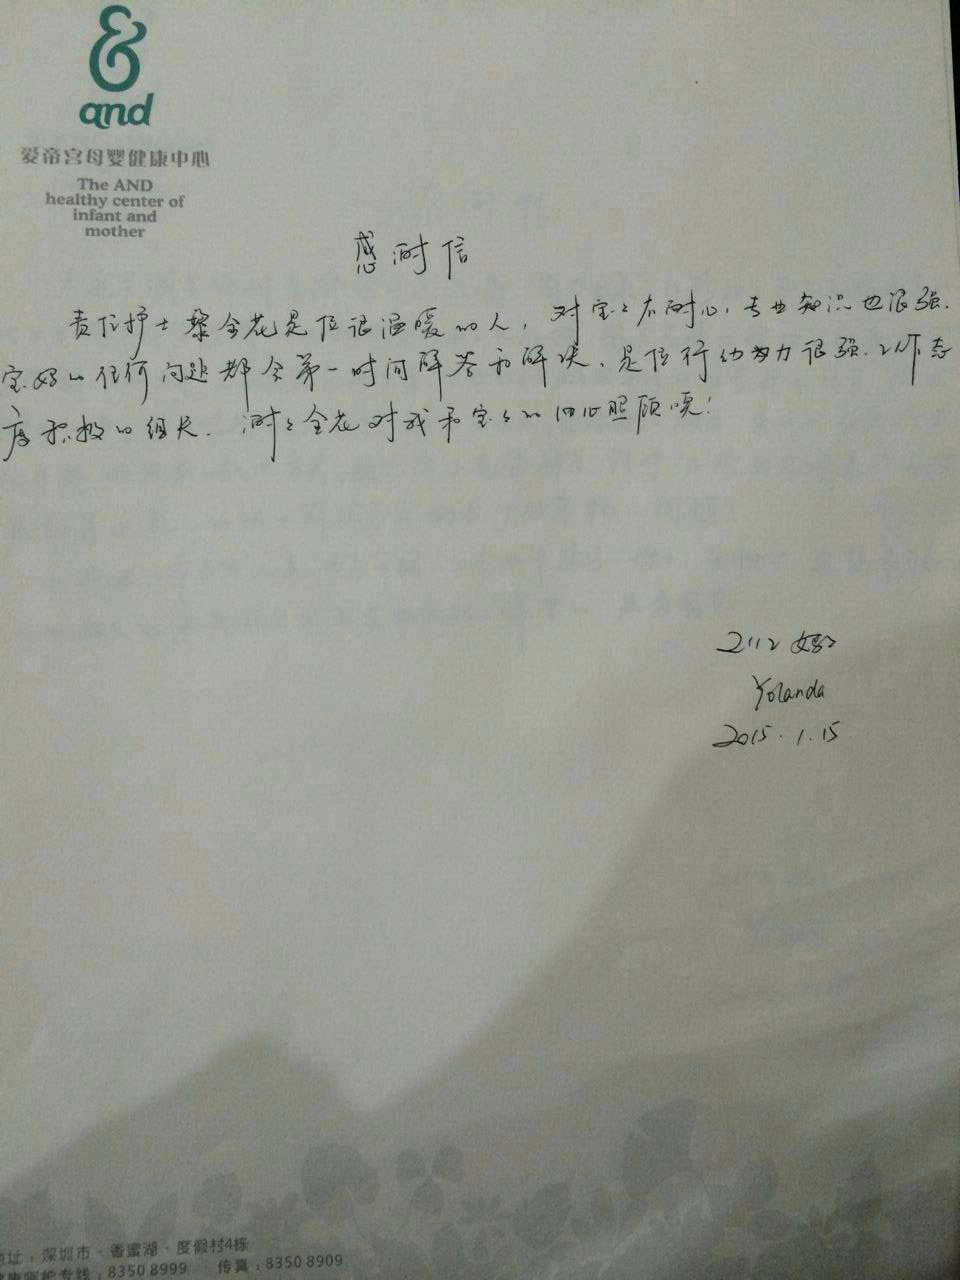 and
爱帝宫母婴健康中心
The AND
healthy center of
infant and
mother
感谢信
责任护士黎金花是位很温暖的人，对宝宝有耐心，专业知识也很强.
宝妈的任何问题都会第一时间解答和解决、是位行动力很强.工作态
度积极的组长. 谢谢金花对我和宝宝的细心照顾噢!
2112 妈妈
Yolanda
2015.1.15
地址：深圳市·香蜜湖·度假村4栋
健康呵护专线：8350 8999 传真：8350 8909